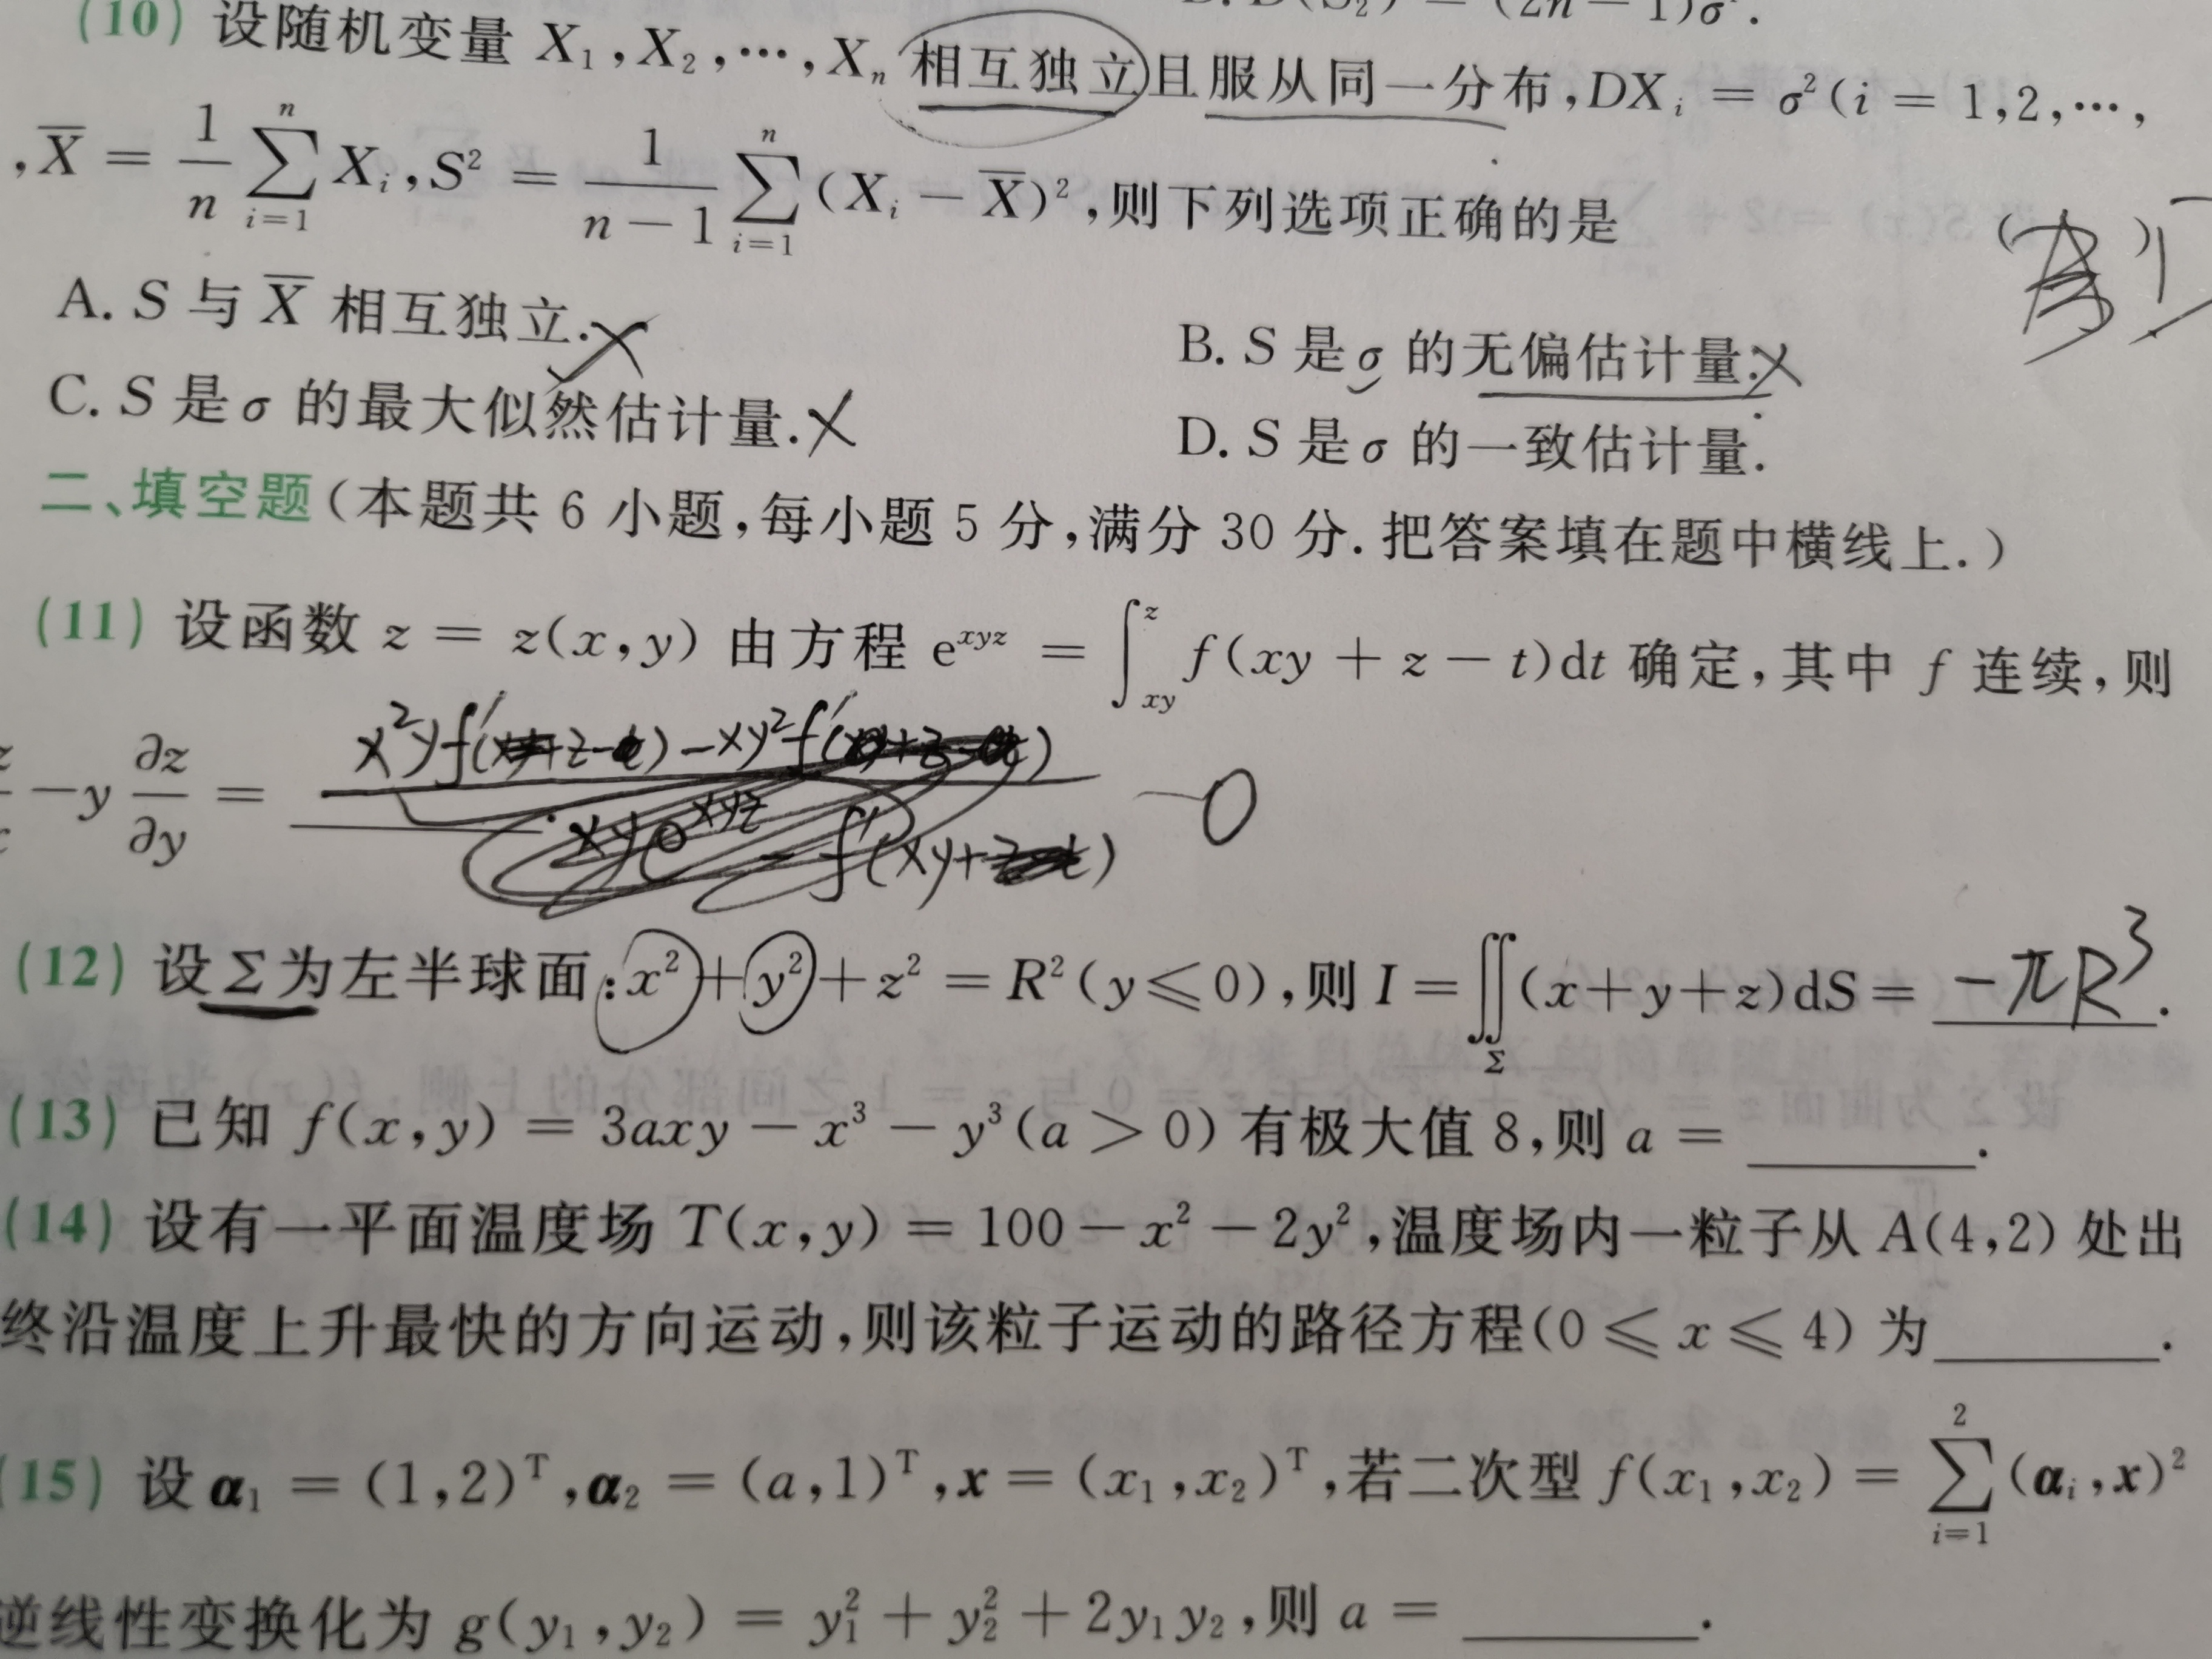 D. D(S₂) = (2n − 1)σ².
(10) 设随机变量 X₁,X₂,⋯,Xₙ 相互独立且服从同一分布,DXᵢ = σ²(i = 1,2,⋯,
,X̅ = 1/n ∑ᵢ₌₁ⁿ Xᵢ,S² = 1/(n − 1) ∑ᵢ₌₁ⁿ (Xᵢ − X̅)²,则下列选项正确的是 ( )
A. S 与 X̅ 相互独立.×
B. S 是 σ 的无偏估计量.×
C. S 是 σ 的最大似然估计量.×
D. S 是 σ 的一致估计量.
二、填空题(本题共 6 小题,每小题 5 分,满分 30 分. 把答案填在题中横线上.)
(11) 设函数 z = z(x,y) 由方程 e^{xyz} = ∫_{xy}^{z} f(xy + z − t)dt 确定,其中 f 连续,则
− y ∂z/∂y = ______. 0
(12) 设 Σ 为左半球面:x² + y² + z² = R²(y ≤ 0),则 I = ∬_Σ (x + y + z)dS = −πR³.
(13) 已知 f(x,y) = 3axy − x³ − y³(a > 0) 有极大值 8,则 a = ______.
(14) 设有一平面温度场 T(x,y) = 100 − x² − 2y²,温度场内一粒子从 A(4,2) 处出
终沿温度上升最快的方向运动,则该粒子运动的路径方程(0 ≤ x ≤ 4) 为______.
(15) 设 α₁ = (1,2)ᵀ,α₂ = (a,1)ᵀ,x = (x₁,x₂)ᵀ,若二次型 f(x₁,x₂) = ∑ᵢ₌₁² (αᵢ,x)²
逆线性变换化为 g(y₁,y₂) = y₁² + y₂² + 2y₁y₂,则 a = ______.